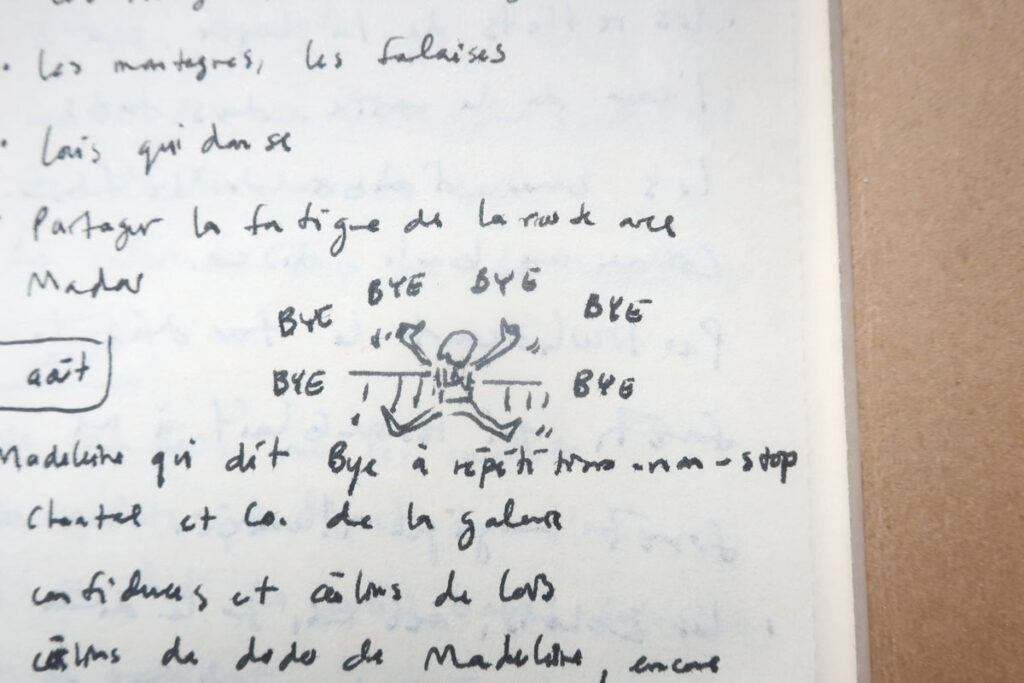 • les montagnes, les falaises
• Loïs qui danse
Partager la fatigue de la route avec
Mado
BYE BYE BYE BYE
BYE BYE
août
Madeleine qui dit Bye à répétition - non-stop
Chantal et Co. de la galerie
confidences et câlins de Loïs
câlins de dodo de Madeleine, encore